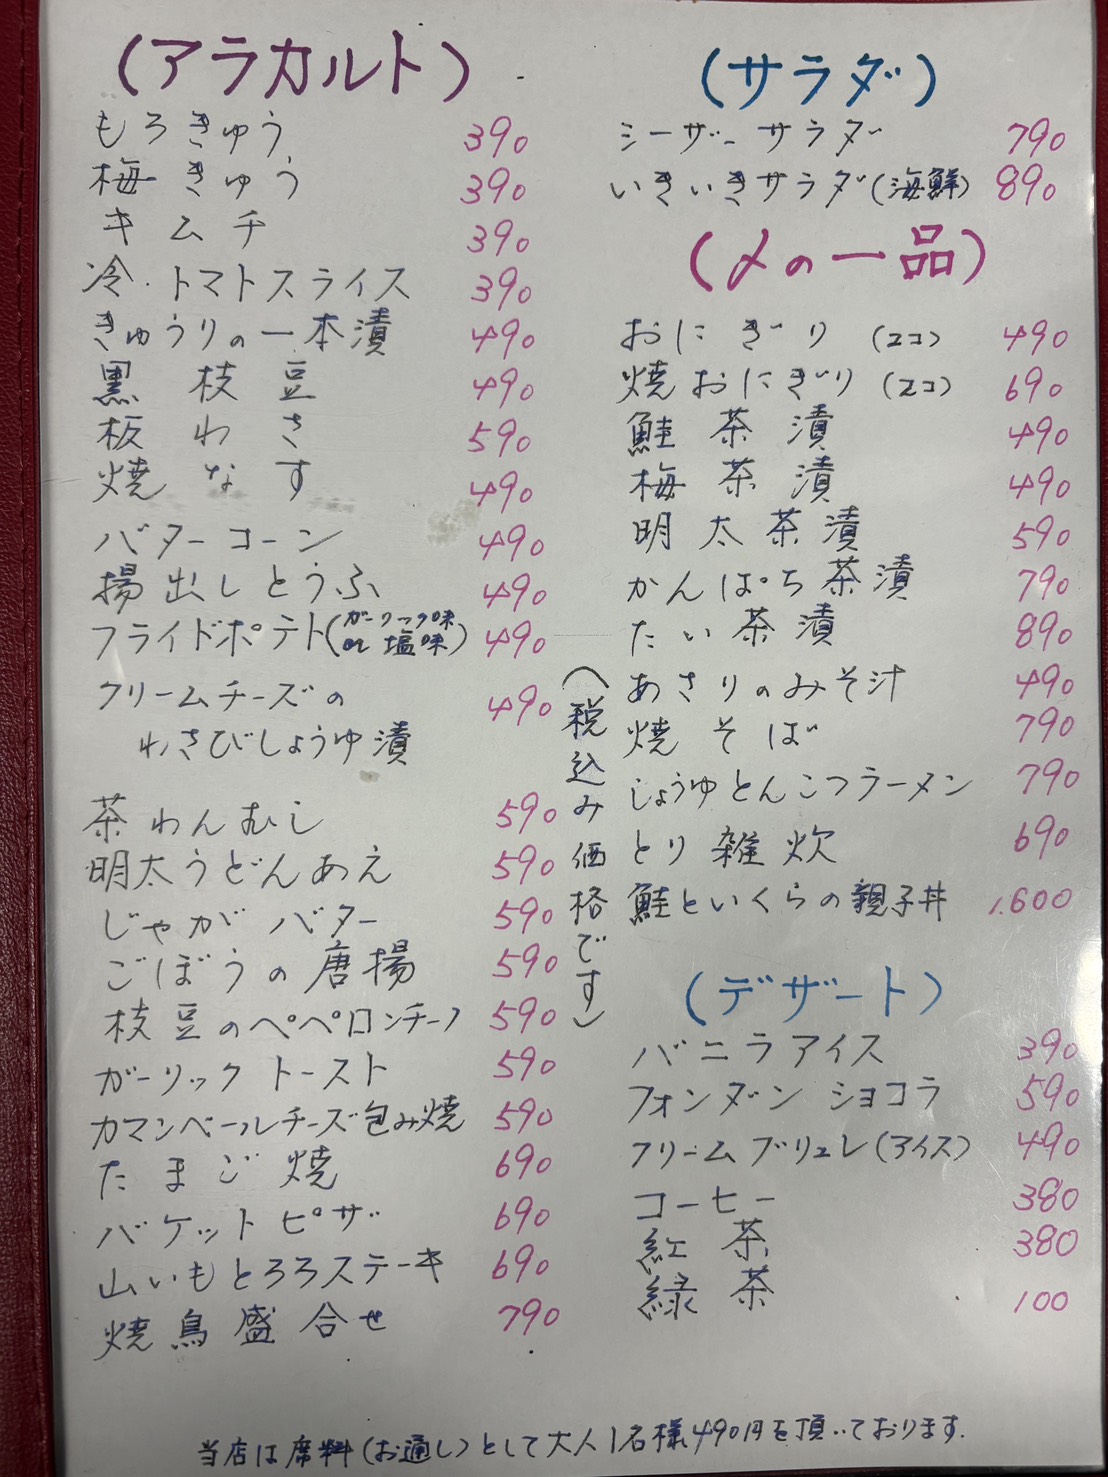 (アラカルト)
もろきゅう 390
梅きゅう 390
キムチ 390
冷・トマトスライス 390
きゅうりの一本漬 490
黒枝豆 490
板わさ 590
焼なす 490
バターコーン 490
揚出しとうふ 490
フライドポテト(ガーリック味or塩味) 490
クリームチーズの 490
わさびしょうゆ漬
茶わんむし 590
明太うどんあえ 590
じゃがバター 590
ごぼうの唐揚 590
枝豆のペペロンチーノ 590
ガーリックトースト 590
カマンベールチーズ包み焼 590
たまご焼 690
バケットピザ 690
山いもとろろステーキ 690
焼鳥盛合せ 790
(税込み価格です)
(サラダ)
シーザーサラダ 790
いきいきサラダ(海鮮) 890
(〆の一品)
おにぎり(2コ) 490
焼おにぎり(2コ) 690
鮭茶漬 490
梅茶漬 490
明太茶漬 590
かんぱち茶漬 790
たい茶漬 890
あさりのみそ汁 490
焼そば 790
しょうゆとんこつラーメン 790
とり雑炊 690
鮭といくらの親子丼 1.600
(デザート)
バニラアイス 390
フォンダンショコラ 590
クリームブリュレ(アイス) 490
コーヒー 380
紅茶 380
緑茶 100
当店は席料(お通し)として大人1名様490円を頂いております.